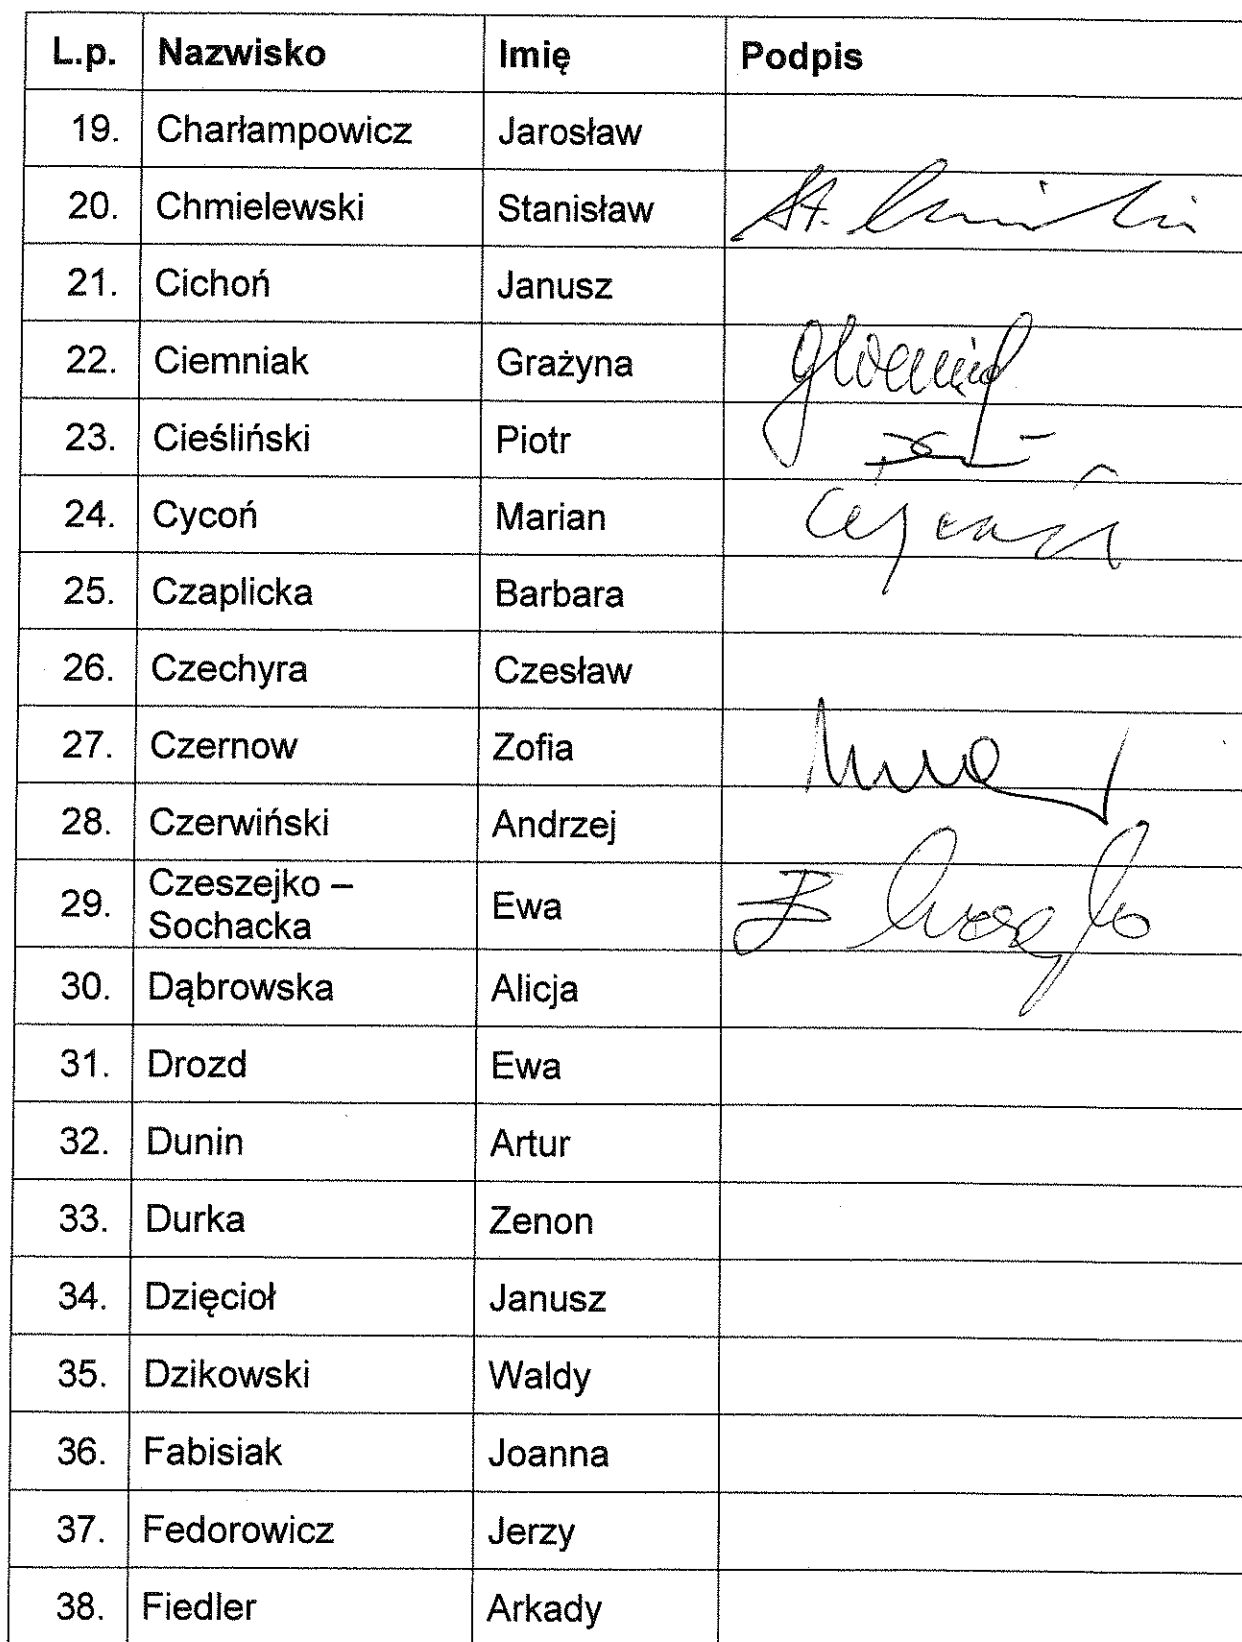 L.p. Nazwisko Imię Podpis
19. Charłampowicz Jarosław
20. Chmielewski Stanisław St.
21. Cichoń Janusz
22. Ciemniak Grażyna
23. Cieśliński Piotr
24. Cycoń Marian
25. Czaplicka Barbara
26. Czechyra Czesław
27. Czernow Zofia
28. Czerwiński Andrzej
Czeszejko –
29. Sochacka Ewa
30. Dąbrowska Alicja
31. Drozd Ewa
32. Dunin Artur
33. Durka Zenon
34. Dzięcioł Janusz
35. Dzikowski Waldy
36. Fabisiak Joanna
37. Fedorowicz Jerzy
38. Fiedler Arkady